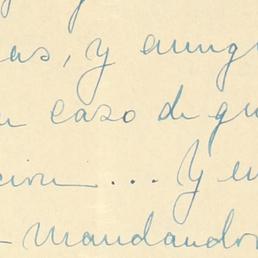 as, y aunq
caso de qu
cion .... Y en
- mandando